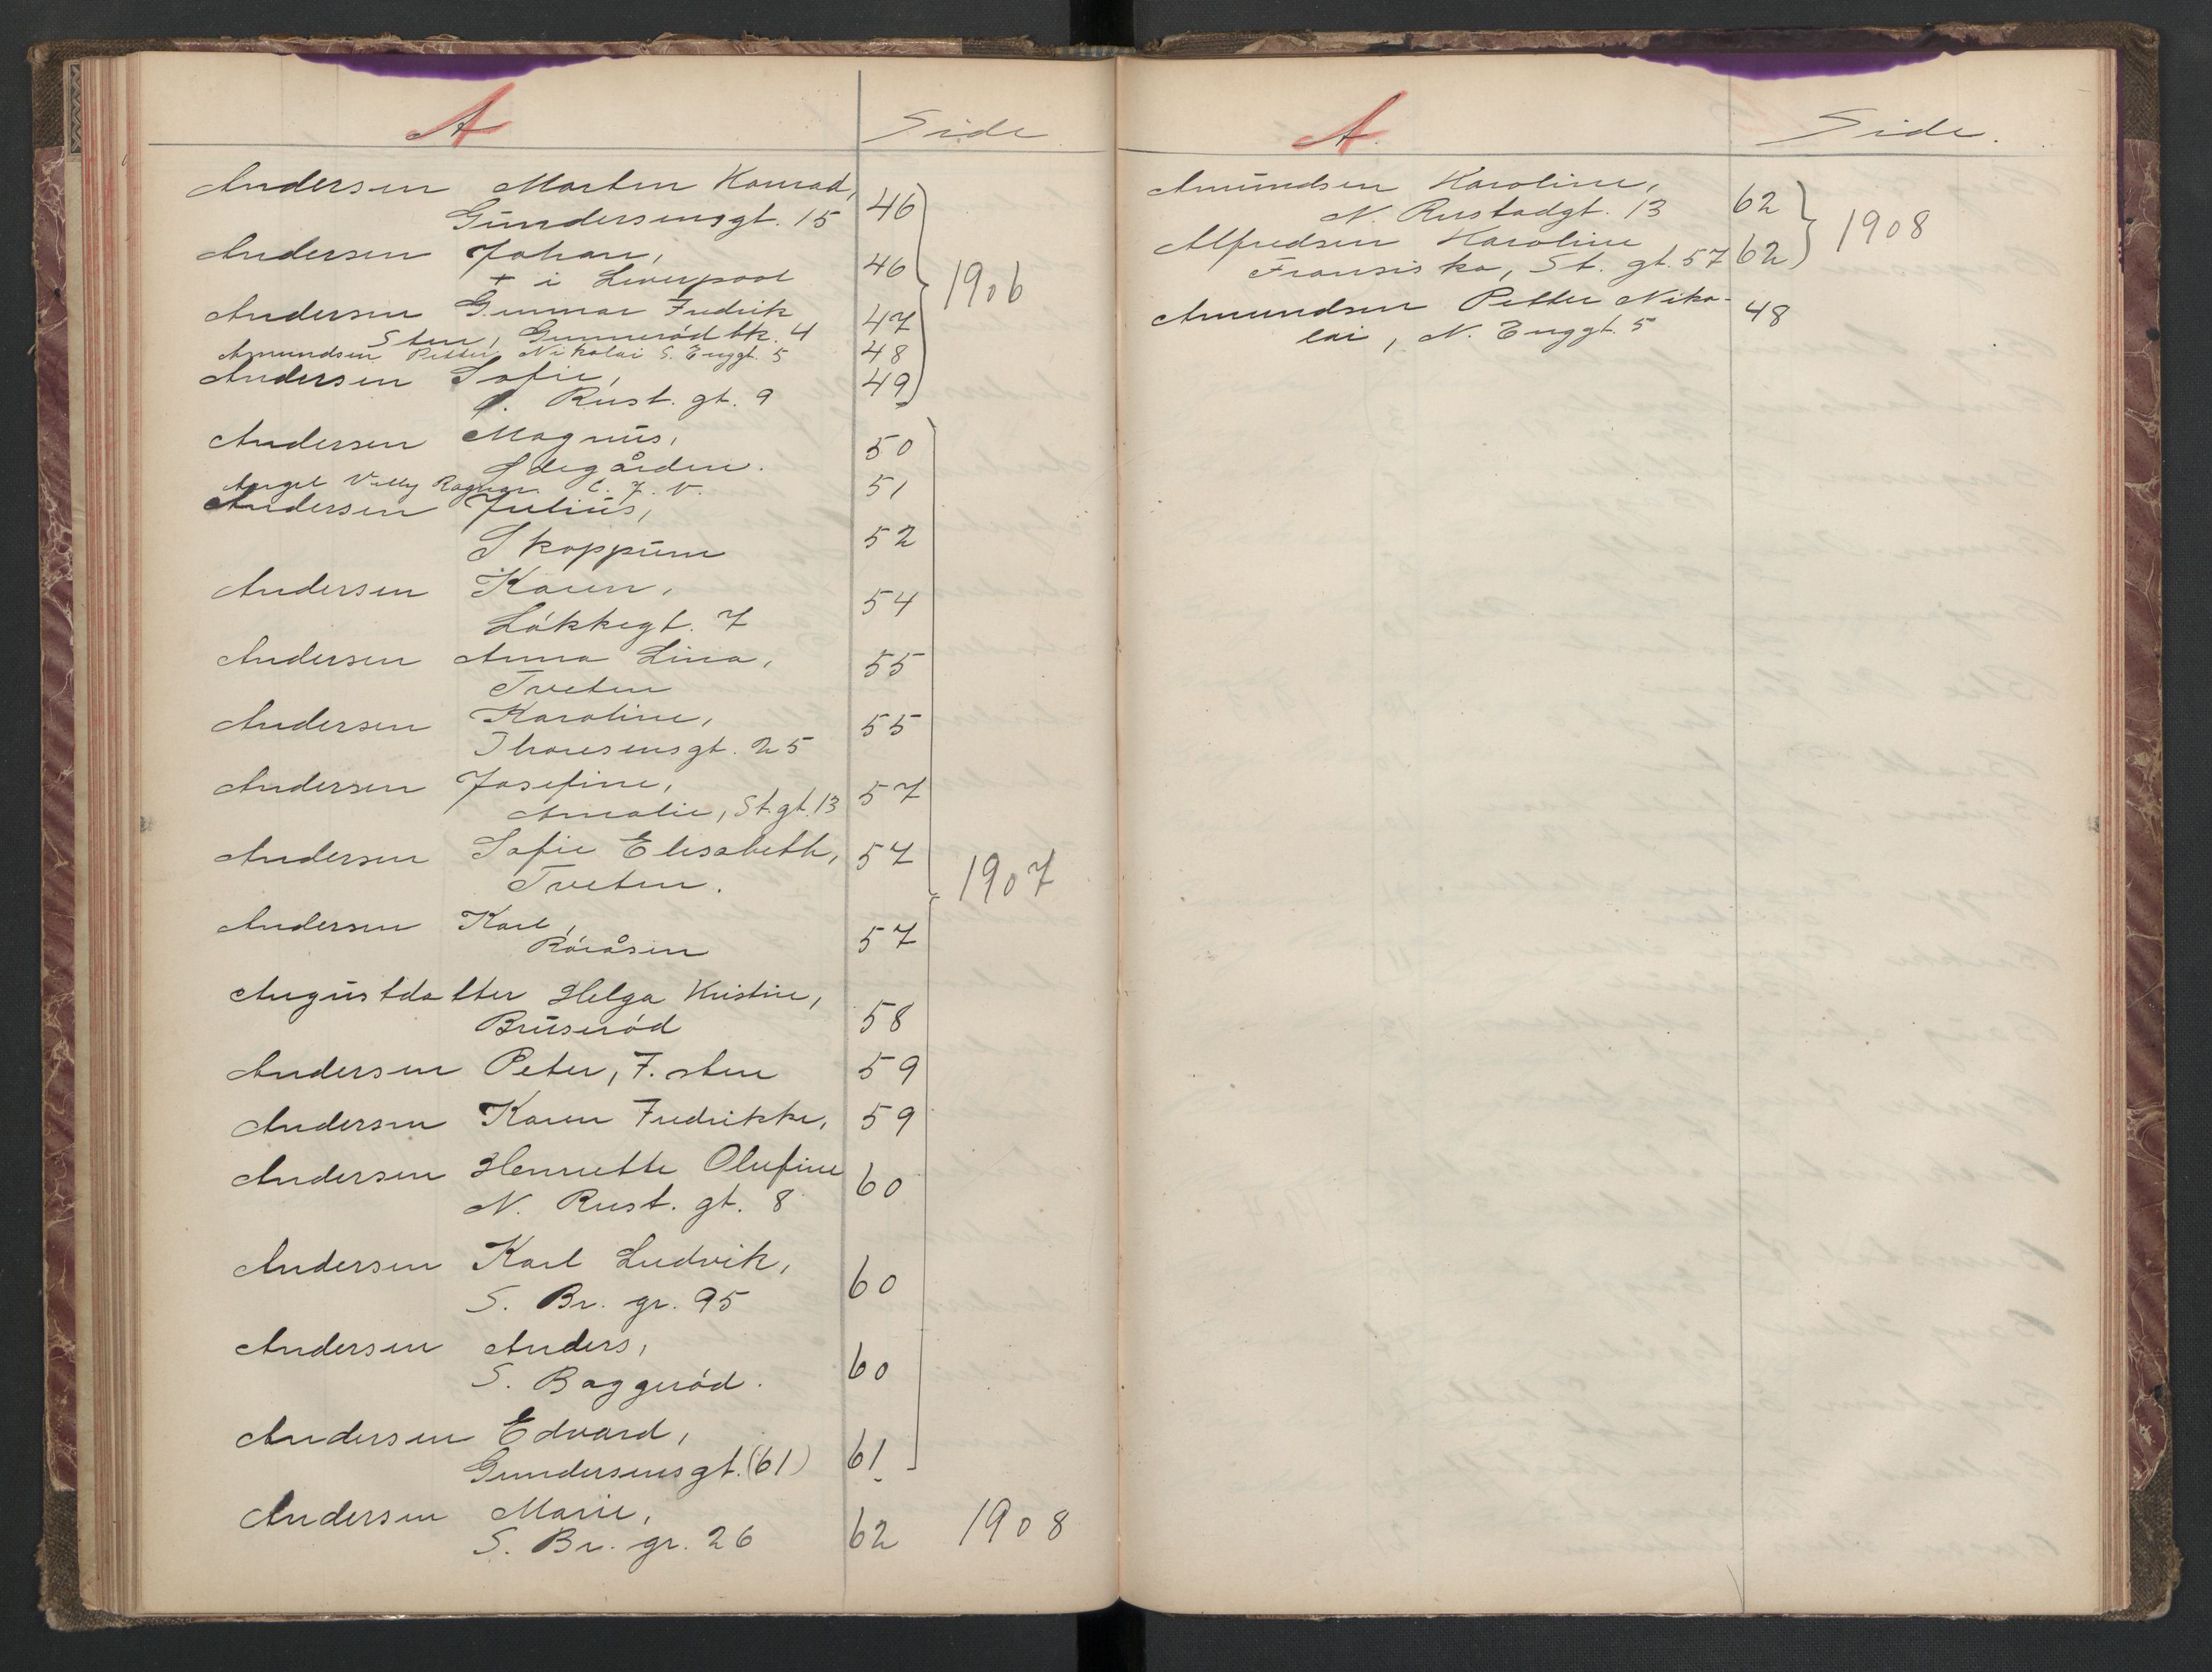 A Side
Andersen Marten Konrad,
Gundersensgt. 15 46
Andersen Johan,
† i Liverpool 46
1906
Andersen Gunnar Fredrik
Sten, Gunnerödbk. 4 47
Amundsen Petter Nikolai S. Enggt. 5 48
Andersen Sofie, 49
Rust. gt. 9
Andersen Magnus, 50
Idegården.
Angel Villy Ragnar C. J. V. 51
Andersen Julius,
Skoppum 52
Andersen Karen,
Lökkegt. 7 54
Andersen Anna Lina, 55
Tveten
Andersen Karoline, 55
Thoresensgt. 25
Andersen Josefine, 57
Amalie, St. gt. 13
Andersen Sofie Elisabeth, 57
Tveten. 1907
Andersen Karl, 57
Råråsen
Augustdatter Helga Kristine,
Bruseröd 58
Andersen Peter, F. sten 59
Andersen Karen Fredrikke, 59
Andersen Henriette Olufine 60
N. Rust. gt. 8
Andersen Karl Ludvik, 60
S. Br. gr. 95
Andersen Anders, 60
S. Baggeröd.
Andersen Edvard,
Gundersensgt. (61) 61
Andersen Marie,
S. Br. gr. 26 62 1908
A. Side.
Amundsen Karoline,
N. Rustadgt. 13 62
1908
Alfredsen Karoline
Fransiska, St. gt. 57 62
Amundsen Petter Niko- 48
lai, N. Enggt. 5